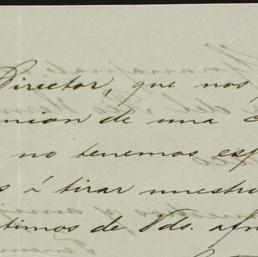 Director, que nos
union de una
no tenemos esp
s á tirar nuestro
timos de Vds. afm